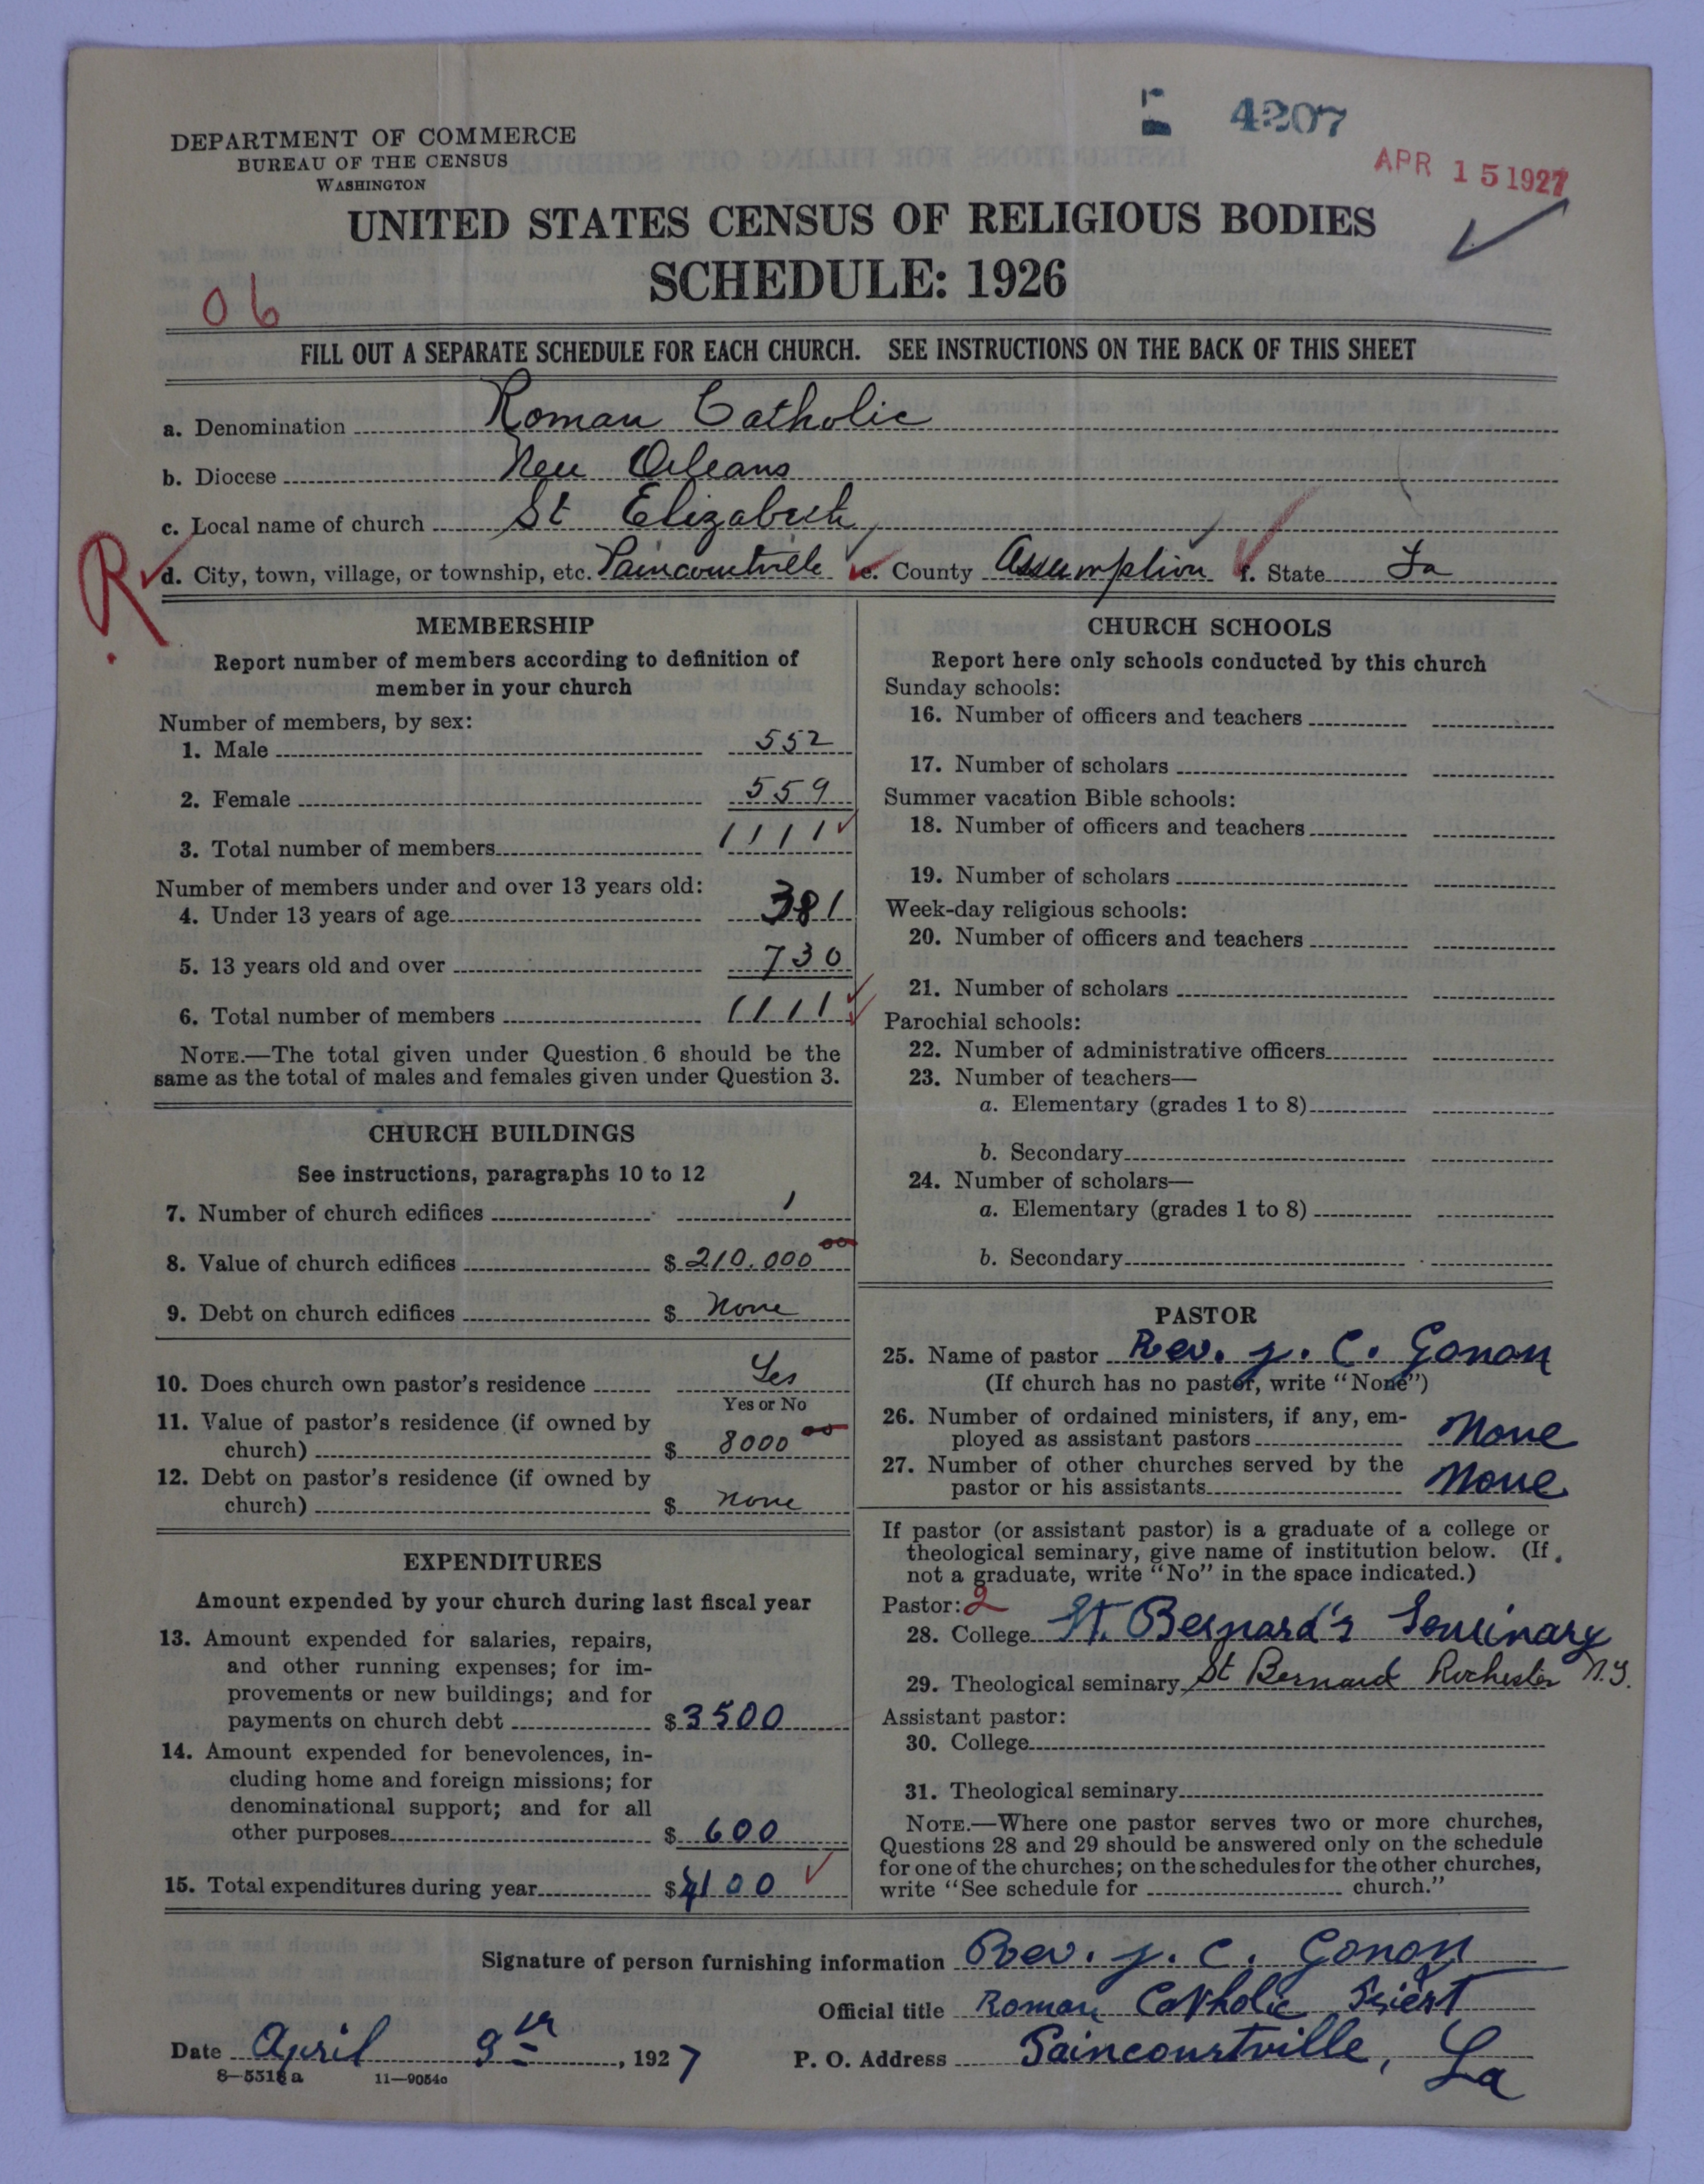 4207
APR 15 1927
DEPARTMENT OF COMMERCE
BUREAU OF THE CENSUS
WASHINGTON
UNITED STATES CENSUS OF RELIGIOUS BODIES
SCHEDULE: 1926
06
FILL OUT A SEPARATE SCHEDULE FOR EACH CHURCH. SEE INSTRUCTIONS ON THE BACK OF THIS SHEET
a. Denomination Roman Catholic
b. Diocese New Orleans
c. Local name of church St Elizabeth
R
d. City, town, village, or township, etc. Paincourtville e. County Assumption f. State La
MEMBERSHIP
Report number of members according to definition of
member in your church
Number of members, by sex:
1. Male 552
2. Female 559
3. Total number of members 1111
Number of members under and over 13 years old:
4. Under 13 years of age 381
5. 13 years old and over 730
6. Total number of members 1111
NOTE.—The total given under Question 6 should be the
same as the total of males and females given under Question 3.
CHURCH BUILDINGS
See instructions, paragraphs 10 to 12
7. Number of church edifices 1
8. Value of church edifices $ 210.000 00
9. Debt on church edifices $ none
10. Does church own pastor's residence Yes
Yes or No
11. Value of pastor's residence (if owned by
church) $ 8000 00
12. Debt on pastor's residence (if owned by
church) $ none
EXPENDITURES
Amount expended by your church during last fiscal year
13. Amount expended for salaries, repairs,
and other running expenses; for im-
provements or new buildings; and for
payments on church debt $ 3500
14. Amount expended for benevolences, in-
cluding home and foreign missions; for
denominational support; and for all
other purposes $ 600
15. Total expenditures during year $ 4100
CHURCH SCHOOLS
Report here only schools conducted by this church
Sunday schools:
16. Number of officers and teachers
17. Number of scholars
Summer vacation Bible schools:
18. Number of officers and teachers
19. Number of scholars
Week-day religious schools:
20. Number of officers and teachers
21. Number of scholars
Parochial schools:
22. Number of administrative officers
23. Number of teachers—
a. Elementary (grades 1 to 8)
b. Secondary
24. Number of scholars—
a. Elementary (grades 1 to 8)
b. Secondary
PASTOR
25. Name of pastor Rev. J. C. Gonon
(If church has no pastor, write "None")
26. Number of ordained ministers, if any, em-
ployed as assistant pastors None
27. Number of other churches served by the
pastor or his assistants None
If pastor (or assistant pastor) is a graduate of a college or
theological seminary, give name of institution below. (If
not a graduate, write "No" in the space indicated.)
Pastor: 2
28. College St. Bernard's Seminary
29. Theological seminary St Bernard Rochester N.Y.
Assistant pastor:
30. College
31. Theological seminary
NOTE.—Where one pastor serves two or more churches,
Questions 28 and 29 should be answered only on the schedule
for one of the churches; on the schedules for the other churches,
write "See schedule for church."
Signature of person furnishing information Rev. J. C. Gonon
Official title Roman Catholic Priest
Date April 9th, 1927 P. O. Address Paincourtville, La
8—5518a 11—9054c